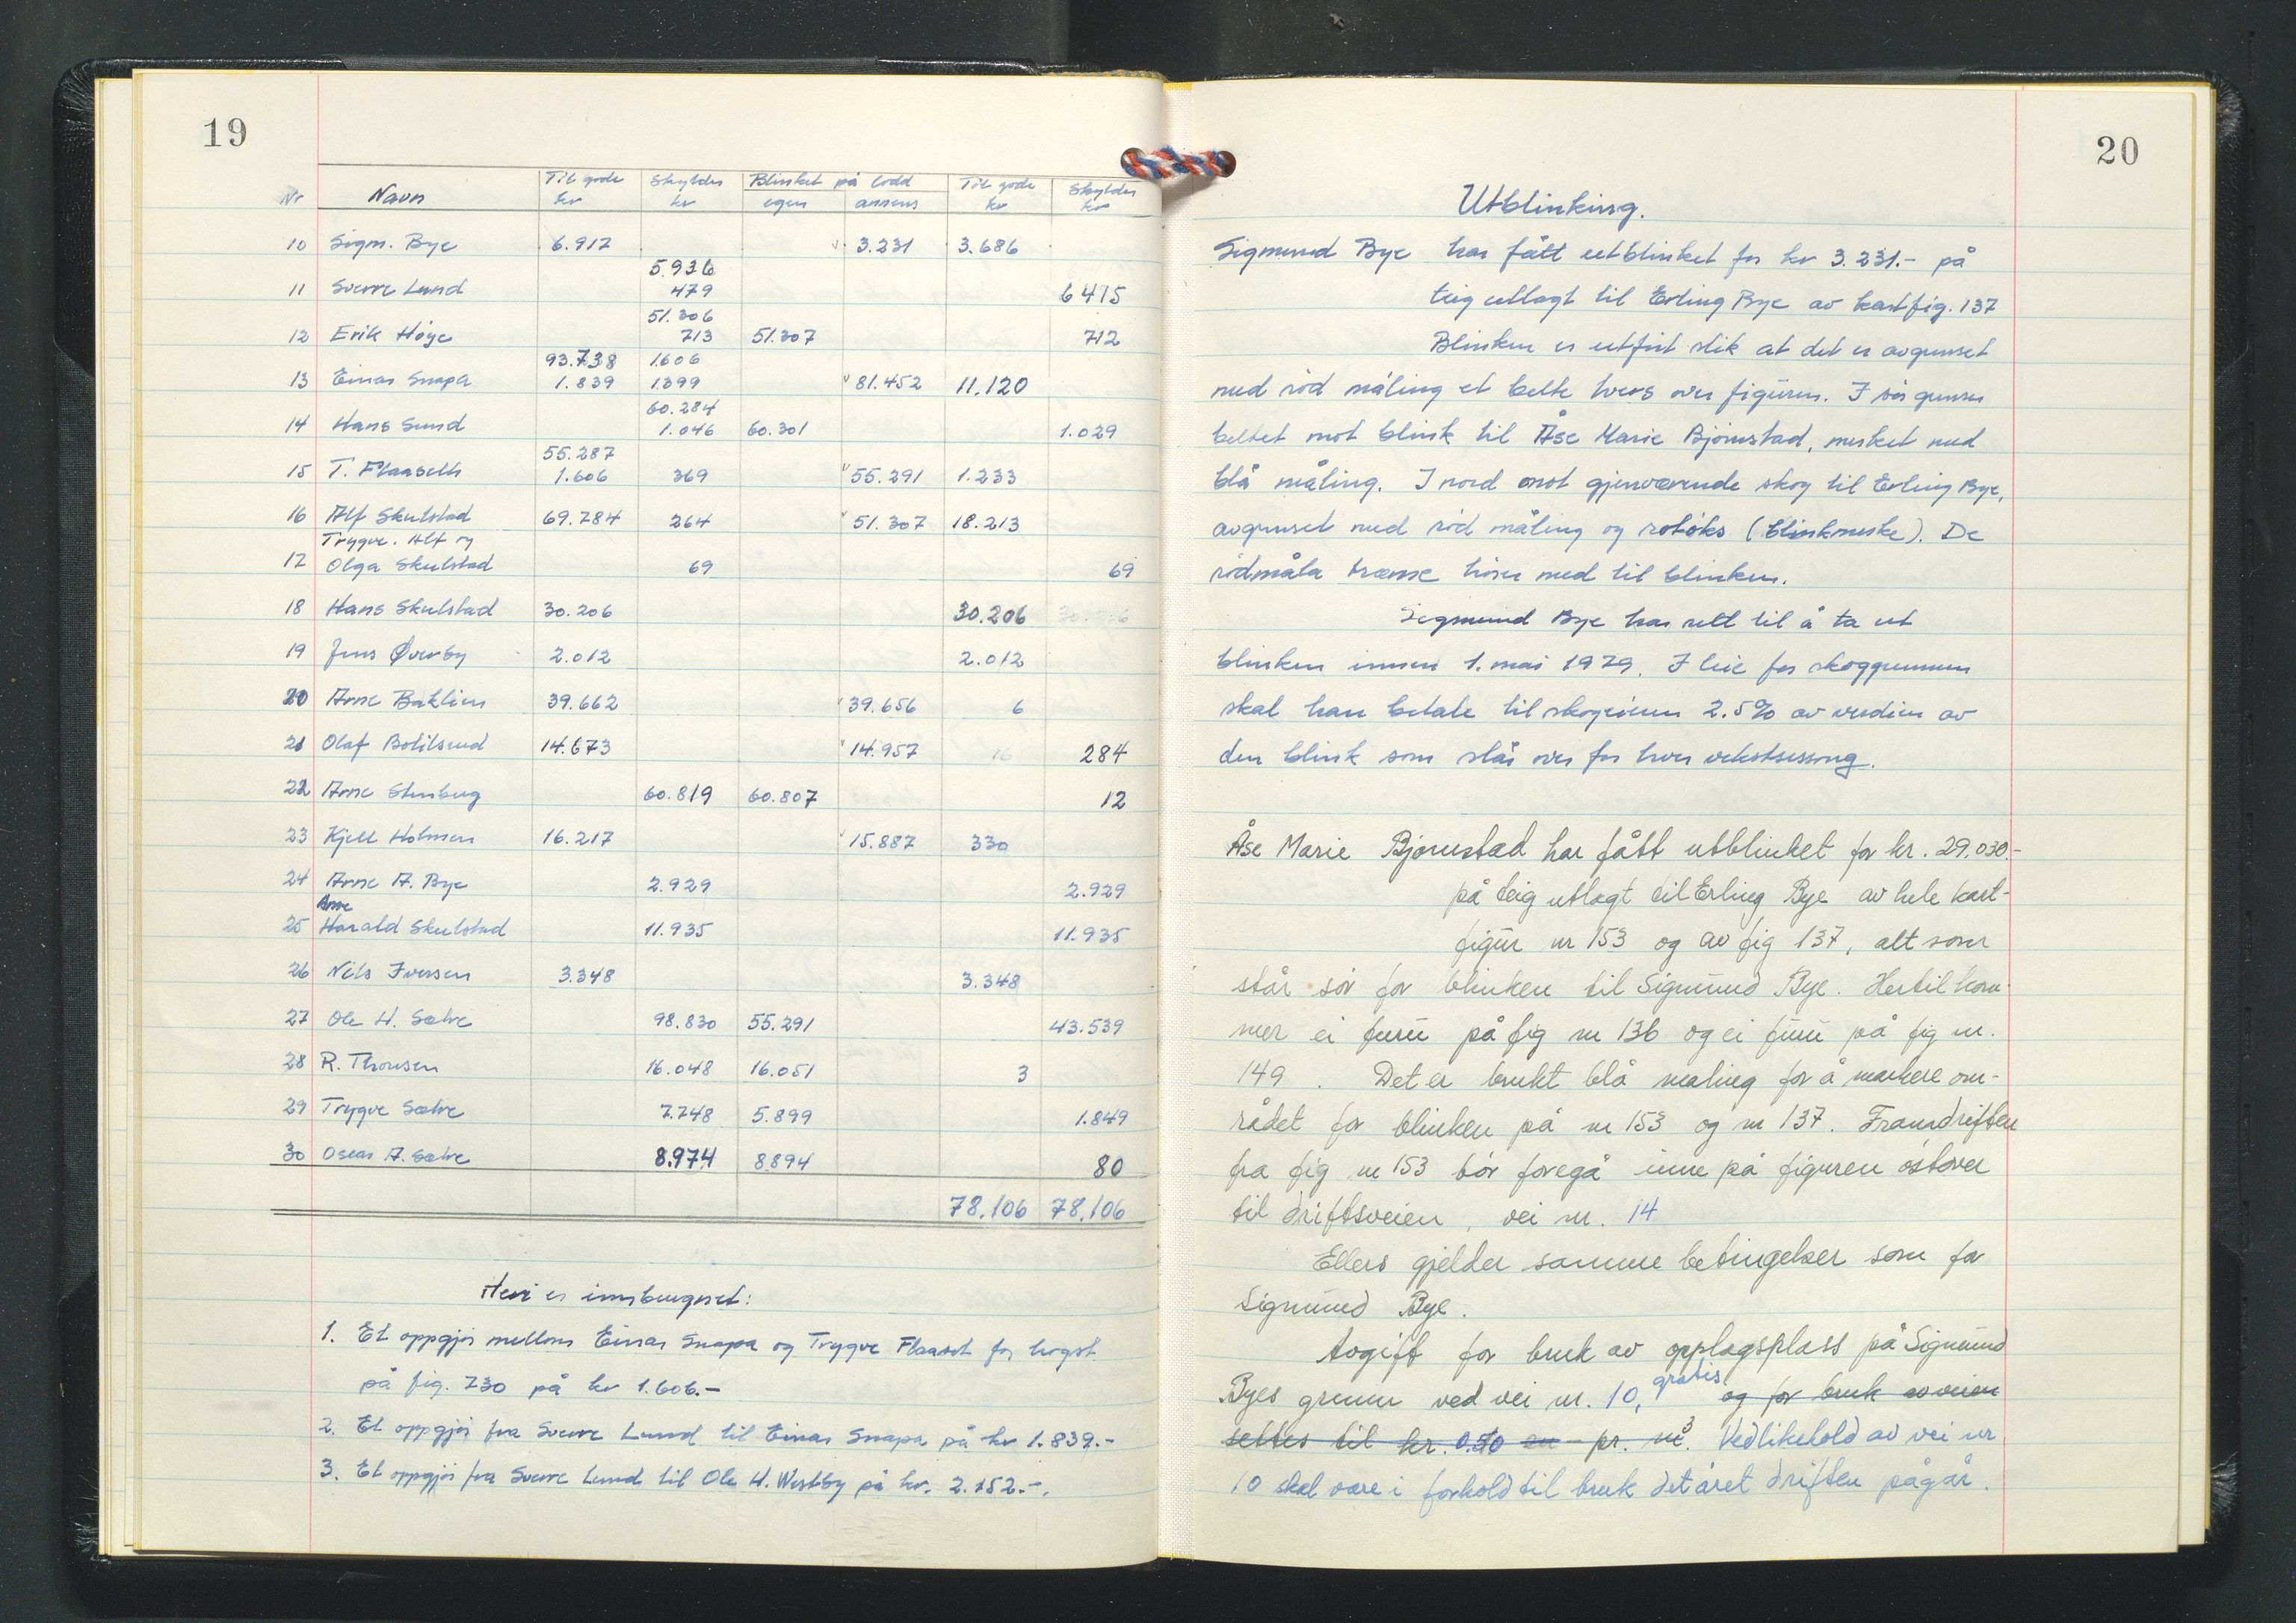 19
Nr Navn Til gode kr Skyldes kr Blinket på lodd egen annens Til gode kr Skyldes kr
10 Sigm. Bye 6.917 3.231 3.686
5.936
11 Sverre Lund 479 6415
51.306
12 Erik Høye 713 51.307 712
93.738 1606
13 Einar Snapa 1.839 1399 81.452 11.120
60.284
14 Hans Sund 1.046 60.301 1.029
55.287
15 T. Flaaseth 1.606 369 55.291 1.233
16 Alf Skulstad 69.784 264 51.307 18.213
Trygve. Alf og
17 Olga Skulstad 69 69
18 Hans Skulstad 30.206 30.206
19 Jens Øverby 2.012 2.012
20 Arne Baklien 39.662 39.656 6
21 Olaf Botilsrud 14.673 14.957 16 284
22 Arne Stenberg 60.819 60.807 12
23 Kjell Holmen 16.217 15.887 330
24 Arne A. Bye 2.929 2.929
Arne
25 Harald Skulstad 11.935 11.935
26 Nils Iversen 3.348 3.348
27 Ole H. Sætre 98.830 55.291 43.539
28 R. Thonsen 16.048 16.051 3
29 Trygve Sætre 7.748 5.899 1.849
30 Oscar A. Sætre 8.974 8.894 80
78.106 78.106
Heri er innberegnet:
1. Et oppgjør mellom Einar Snapa og Trygve Flaaset for hogst
på fig. 730 på kr 1.606.-
2. Et oppgjør fra Sverre Lund til Einar Snapa på kr 1.839.-
3. Et oppgjør fra Sverre Lund til Ole H. Westby på kr. 2.152.-.
20
Utblinking.
Sigmund Bye har fått utblinket for kr 3.231.- på
teig utlagt til Erling Bye av kastfig. 137
Blinken er utført slik at det er avgrenset
med rød måling et belte tvers over figuren. I sør grenser
beltet mot blink til Åse Marie Bjørnstad, merket med
blå måling. I nord mot gjenværende skog til Erling Bye,
avgrenset med rød måling og rotøks (blinkmerke). De
rødmåla trærne hører med til blinken.
Sigmund Bye har rett til å ta ut
blinken innen 1. mai 1979. I leie for skoggrunnen
skal han betale til skogeieren 2.5% av verdien av
den blink som står over for hver vekstsesong.
Åse Marie Bjørnstad har fått utblinket for kr. 29.030.-
på teig utlagt til Erling Bye av hele kast-
figur nr 153 og av fig 137, alt som
står sør for blinken til Sigmund Bye. Hertil kom-
mer ei furu på fig nr 136 og ei furu på fig nr.
149. Det er brukt blå maling for å markere om-
rådet for blinken på nr 153 og nr 137. Framdriften
fra fig nr 153 bør foregå inne på figuren østover
til driftsveien, vei nr. 14
Ellers gjelder samme betingelser som for
Sigmund Bye.
Avgift for bruk av opplagsplass på Sigmund
Byes grunn ved vei nr. 10, gratis og for bruk av veien
settes til kr. 0.50 pr. m³. Vedlikehold av vei nr
10 skal være i forhold til bruk det året driften pågår.